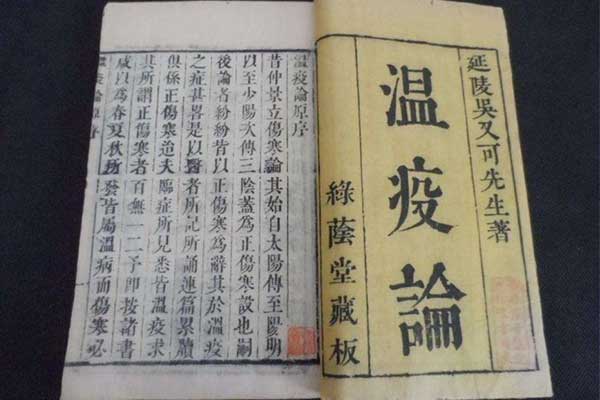 延陵吳又可先生著
温疫論
綠蔭堂藏板
温疫論原序
昔仲景立傷寒論其始自太陽傳至陽明
以至少陽次傳三陰蓋為正傷寒設也嗣
後論者紛紛皆以正傷寒為辭其於溫疫
之症甚畧是以醫者所記所誦連篇累牘
俱係正傷寒迨夫臨症所見悉皆温疫求
其所謂正傷寒者百無一二予即按諸書
咸以為春夏秋所發皆屬溫病而傷寒必
疫論原序